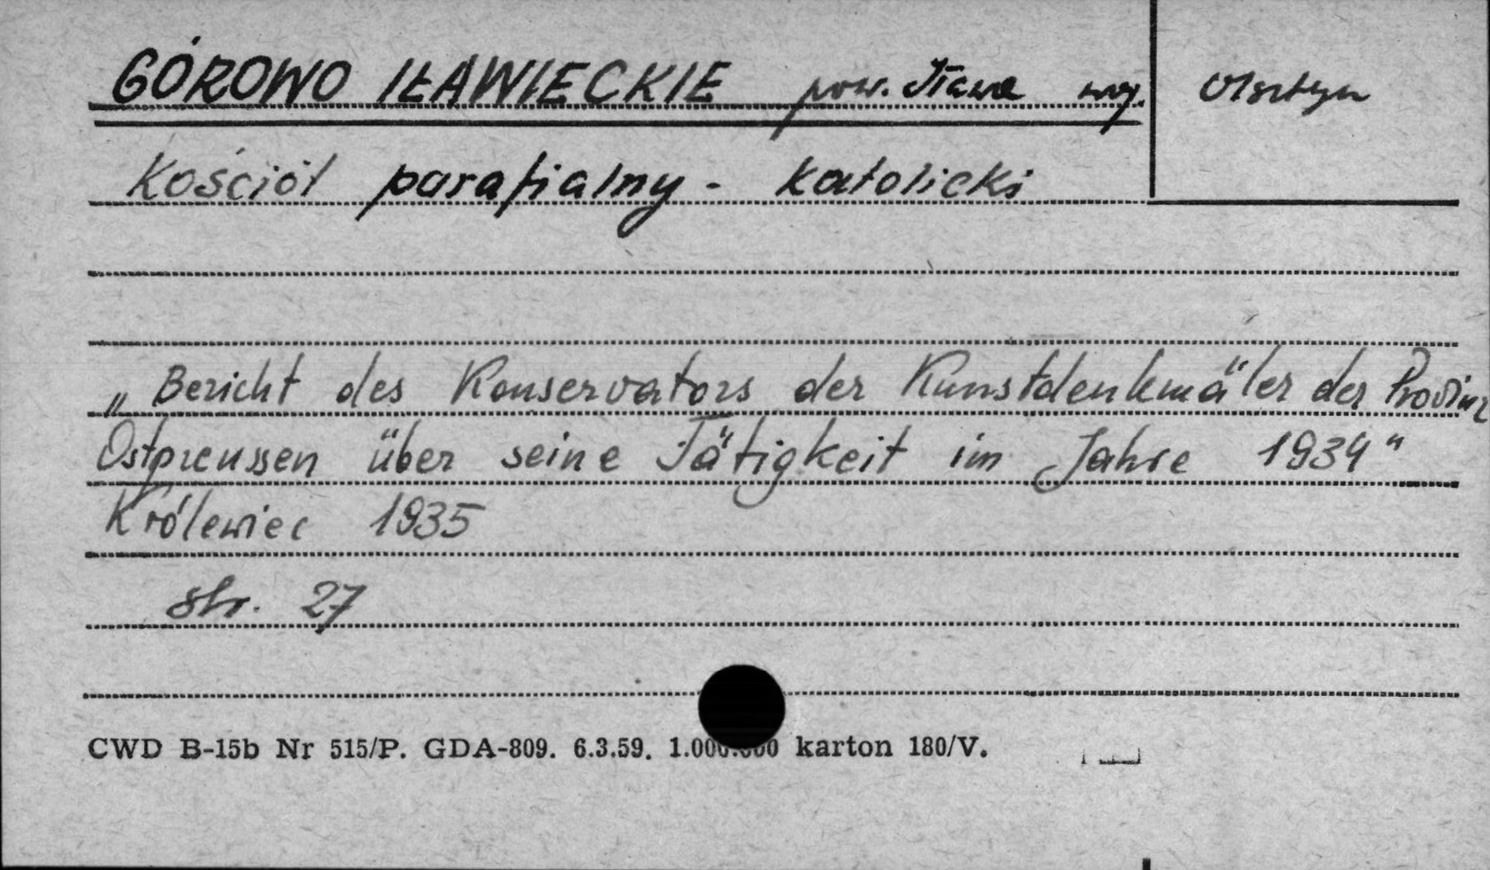 GÓROWO IŁAWIECKIE pow. Iława woj. Olsztyn
Kościół parafialny - katolicki
„Bericht des Konservators der Kunstdenkmäler der Provinz
Ostpreussen über seine Tätigkeit im Jahre 1934"
Królewiec 1935
str. 27
CWD B-15b Nr 515/P. GDA-809. 6.3.59. 1.000.000 karton 180/V.